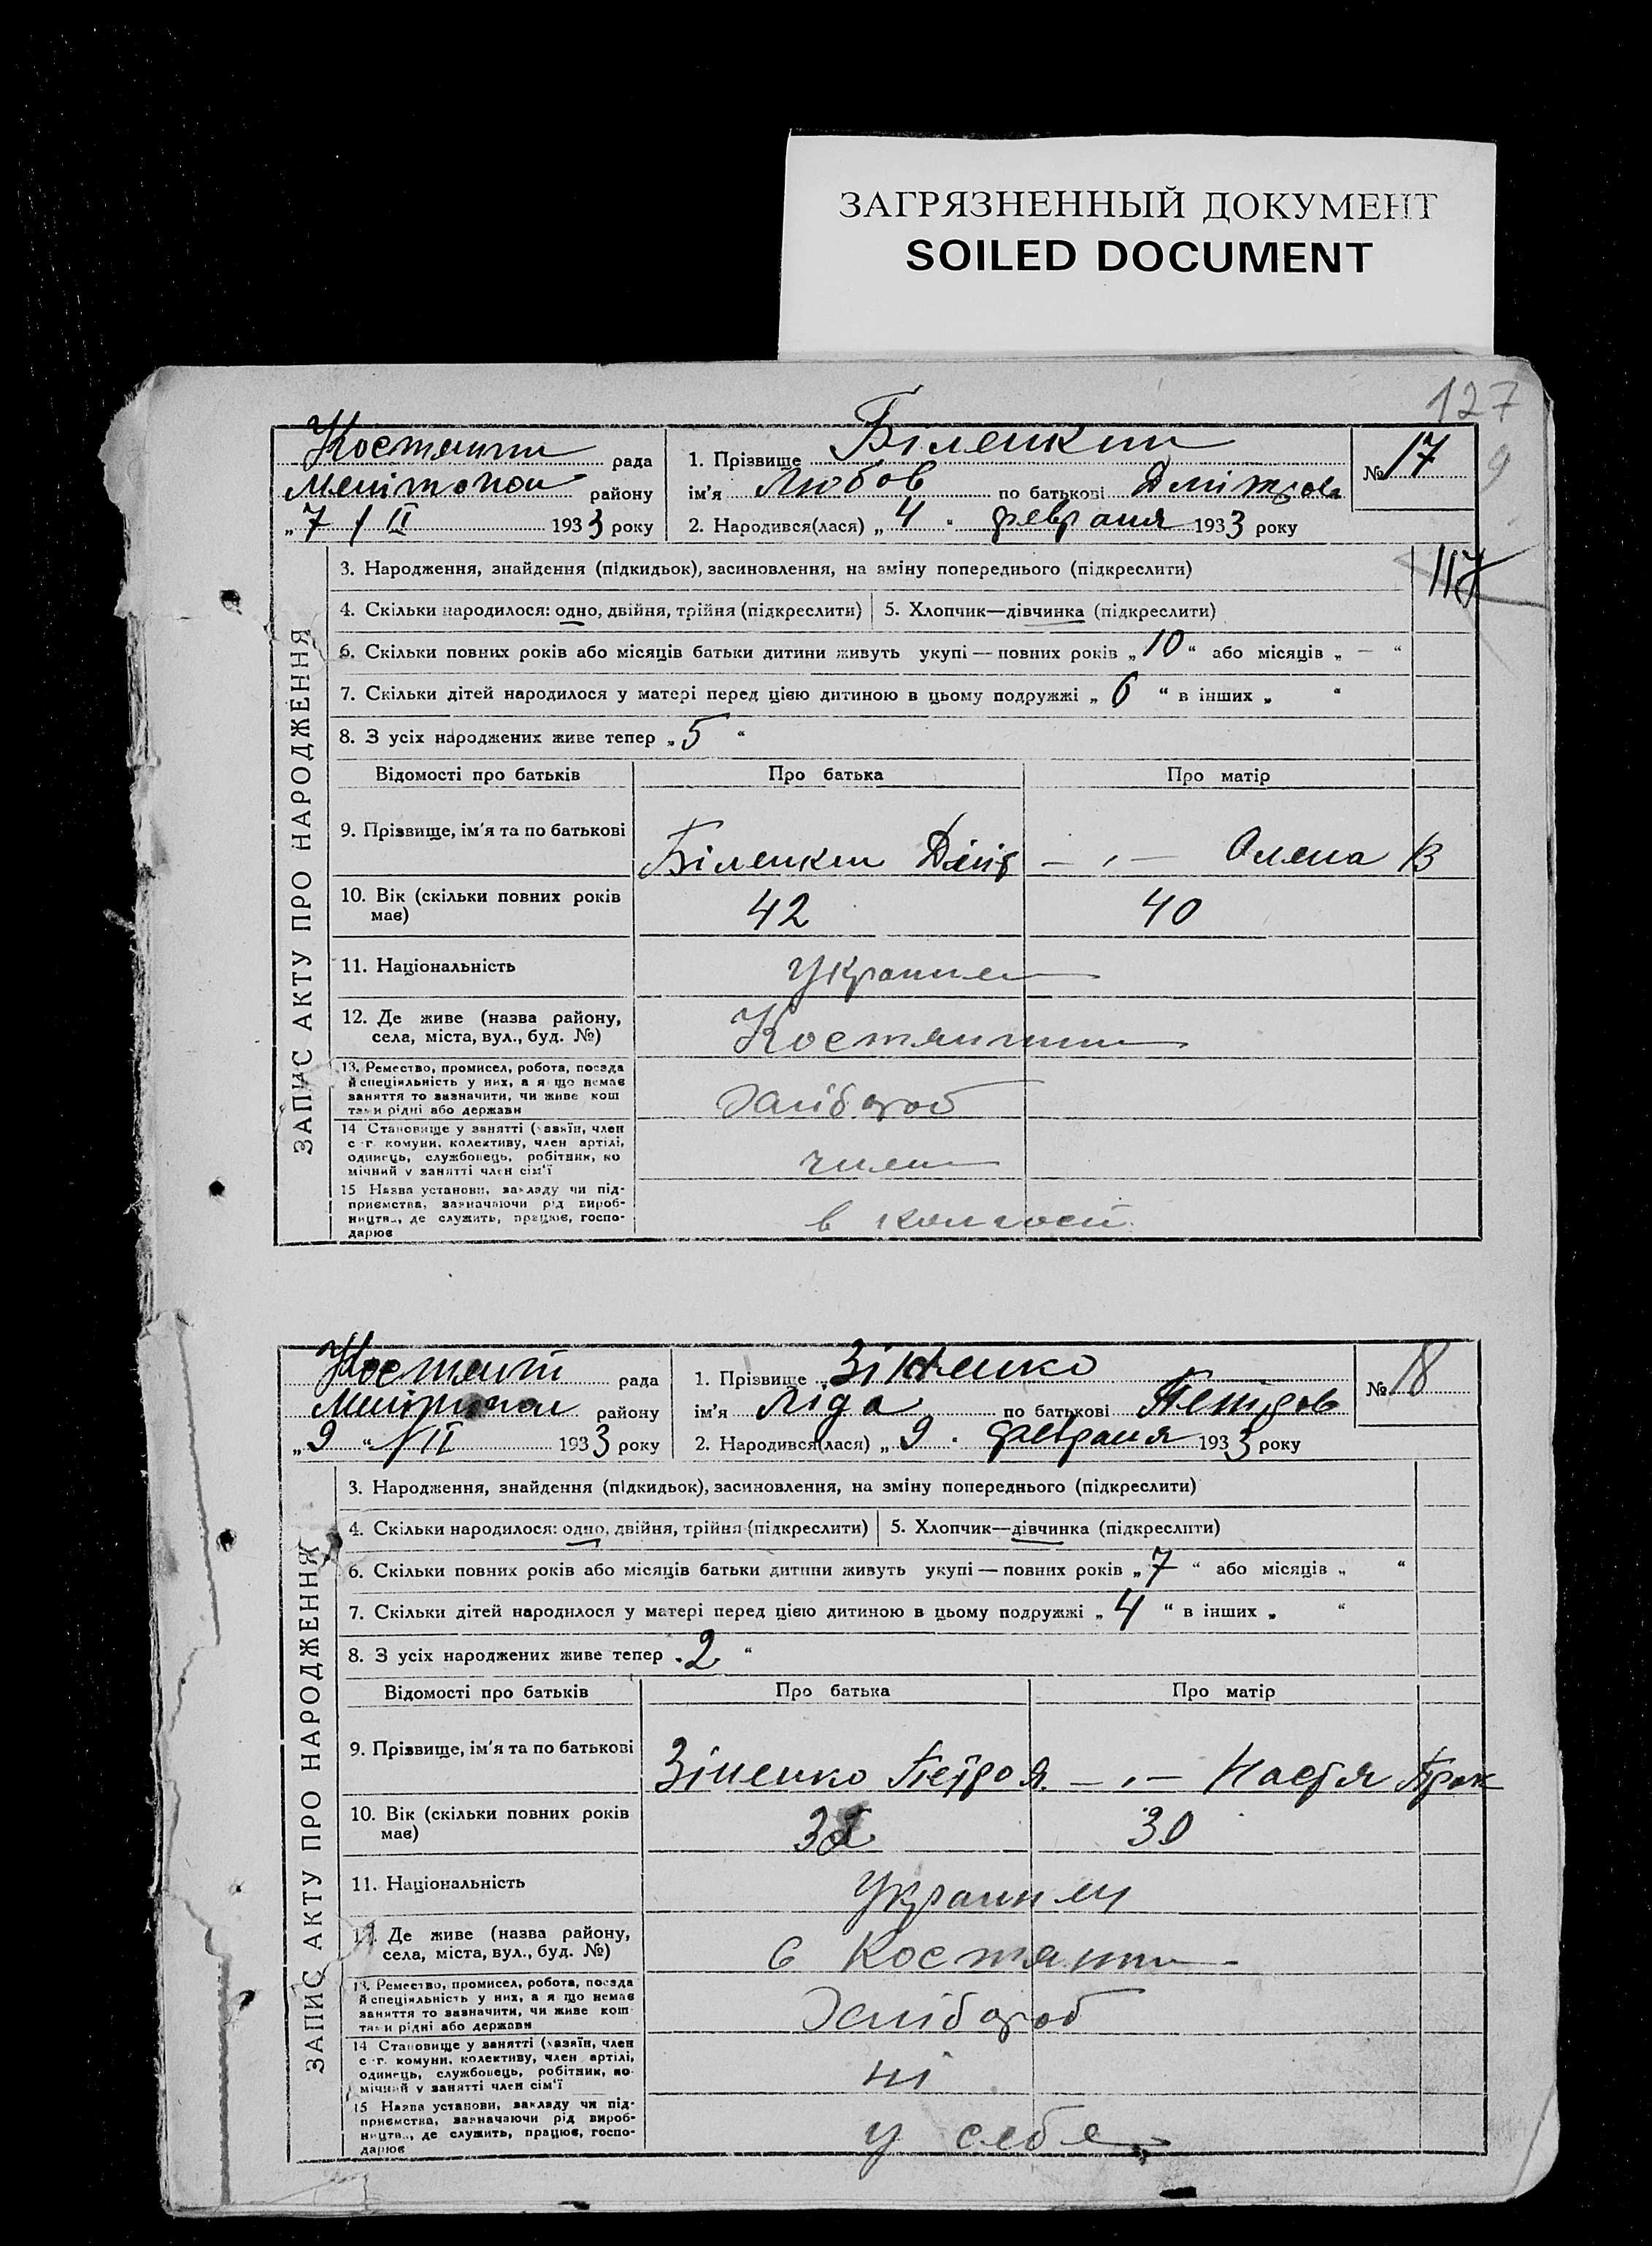 ЗАГРЯЗНЕННЫЙ ДОКУМЕНТ
SOILED DOCUMENT
127
9
рада
району
„ 7 / II 1933 року
1. Прізвище
ім'я Любов по батькові
2. Народився(лася) „ 4 “ февраля 1933 року
№ 17
117
ЗАПИС АКТУ ПРО НАРОДЖЕННЯ
3. Народження, знайдення (підкидьок), засиновлення, на зміну попереднього (підкреслити)
4. Скільки народилося: одно, двійня, трійня (підкреслити) 5. Хлопчик—дівчинка (підкреслити)
6. Скільки повних років або місяців батьки дитини живуть укупі — повних років „ 10 “ або місяців „ — “
7. Скільки дітей народилося у матері перед цією дитиною в цьому подружжі „ 6 “ в інших „ “
8. З усіх народжених живе тепер „ 5 “
Відомості про батьків Про батька Про матір
9. Прізвище, ім'я та по батькові
— „ — Олена В
10. Вік (скільки повних років
має)
42 40
11. Національність
12. Де живе (назва району,
села, міста, вул., буд. №)
13. Ремество, промисел, робота, посада
й спеціяльність у них, а як що немає
заняття то зазначити, чи живе кош
тами рідні або держави
14 Становище у занятті (хазяїн, член
с.-г. комуни, колективу, член артілі,
одинець, службовець, робітник, по
мічний у занятті член сім'ї
член
15 Назва установи, закладу чи під-
приємства, зазначаючи рід вироб-
ництва, де служить, працює, госпо-
дарює
в
рада
району
„ 9 “ / II 1933 року
1. Прізвище Зіненко
ім'я Ліда по батькові Петров
2. Народився(лася) „ 9 “ февраля 1933 року
№ 18
ЗАПИС АКТУ ПРО НАРОДЖЕННЯ
3. Народження, знайдення (підкидьок), засиновлення, на зміну попереднього (підкреслити)
4. Скільки народилося: одно, двійня, трійня (підкреслити) 5. Хлопчик—дівчинка (підкреслити)
6. Скільки повних років або місяців батьки дитини живуть укупі — повних років „ 7 “ або місяців „ “
7. Скільки дітей народилося у матері перед цією дитиною в цьому подружжі „ 4 “ в інших „ “
8. З усіх народжених живе тепер „ 2 “
Відомості про батьків Про батька Про матір
9. Прізвище, ім'я та по батькові
Зіненко Петро Я. — „ — Настя Прок
10. Вік (скільки повних років
має)
30
11. Національність
12. Де живе (назва району,
села, міста, вул., буд. №)
13. Ремество, промисел, робота, посада
й спеціяльність у них, а як що немає
заняття то зазначити, чи живе кош
тами рідні або держави
14 Становище у занятті (хазяїн, член
с.-г. комуни, колективу, член артілі,
одинець, службовець, робітник, по
мічний у занятті член сім'ї
ні
15 Назва установи, закладу чи під-
приємства, зазначаючи рід вироб-
ництва, де служить, працює, госпо-
дарює
у себе